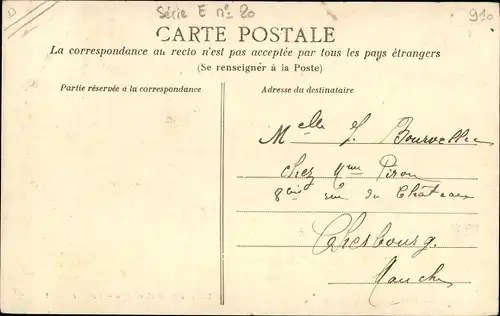 Série E n° 20
910
CARTE POSTALE
La correspondance au recto n'est pas acceptée par tous les pays étrangers
(Se renseigner à la Poste)
Partie réservée à la correspondance
Adresse du destinataire
Melle J. Bourvellec
chez Mme Piron
8bis rue du Château
Cherbourg.
Manche